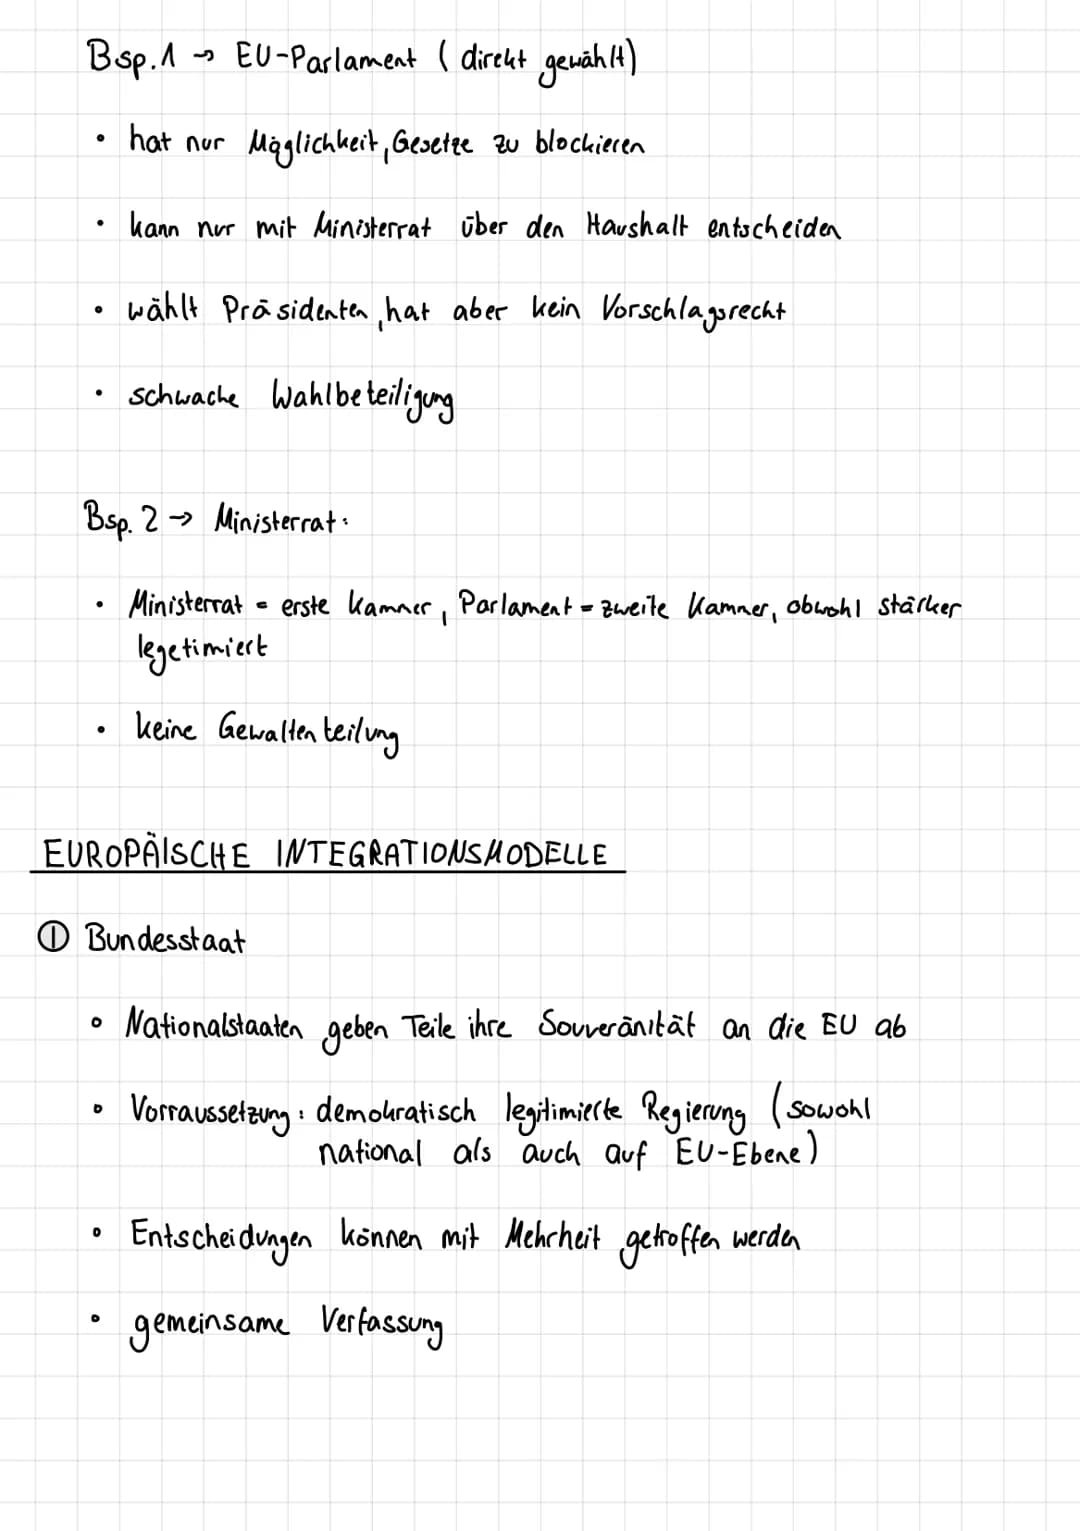 Bsp.1 → EU-Parlament (direkt gewählt)
• hat nur Möglichkeit, Gesetze zu blockieren
• kann nur mit Ministerrat über den Haushalt entscheiden
• wählt Präsidenten, hat aber kein Vorschlagsrecht
• schwache Wahlbeteiligung
Bsp. 2 → Ministerrat:
• Ministerrat = erste Kammer, Parlament = zweite Kammer, obwohl stärker
legetimiert
• keine Gewaltenteilung
EUROPÄISCHE INTEGRATIONSMODELLE
① Bundesstaat
• Nationalstaaten geben Teile ihre Souveränität an die EU ab
• Vorraussetzung: demokratisch legitimierte Regierung (sowohl
national als auch auf EU-Ebene)
• Entscheidungen können mit Mehrheit getroffen werden
• gemeinsame Verfassung